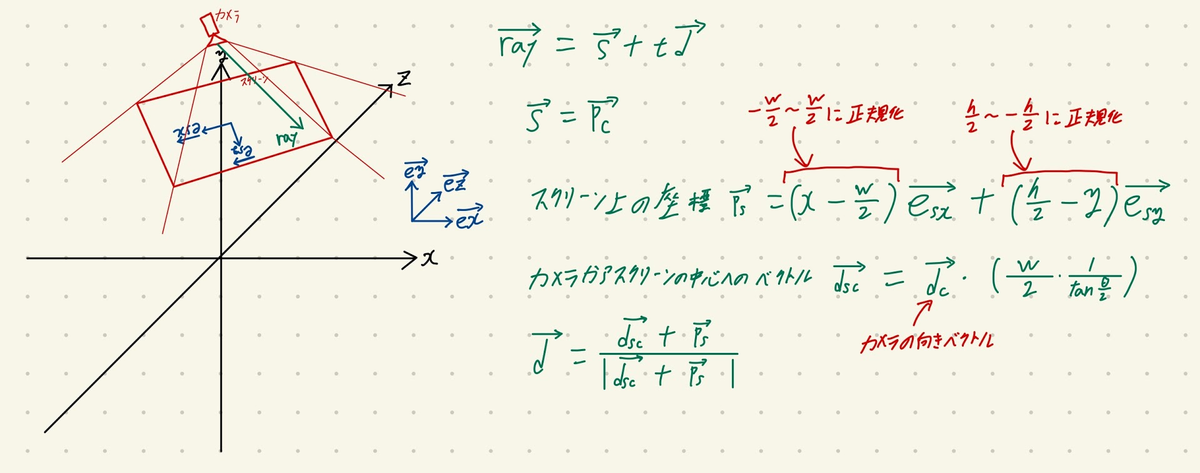 カメラ
y
スクリーン
z
ray
esx
esy
ey
ez
ex
x
ray = s + t d
s = Pc
-w/2 ~ w/2 に正規化
h/2 ~ -h/2 に正規化
スクリーン上の座標 Ps = (x - w/2) esx + (h/2 - y) esy
カメラからスクリーンの中心へのベクトル dsc = dc · (w/2 · 1/tan θ/2)
カメラの向きベクトル
d = dsc + Ps / |dsc + Ps|